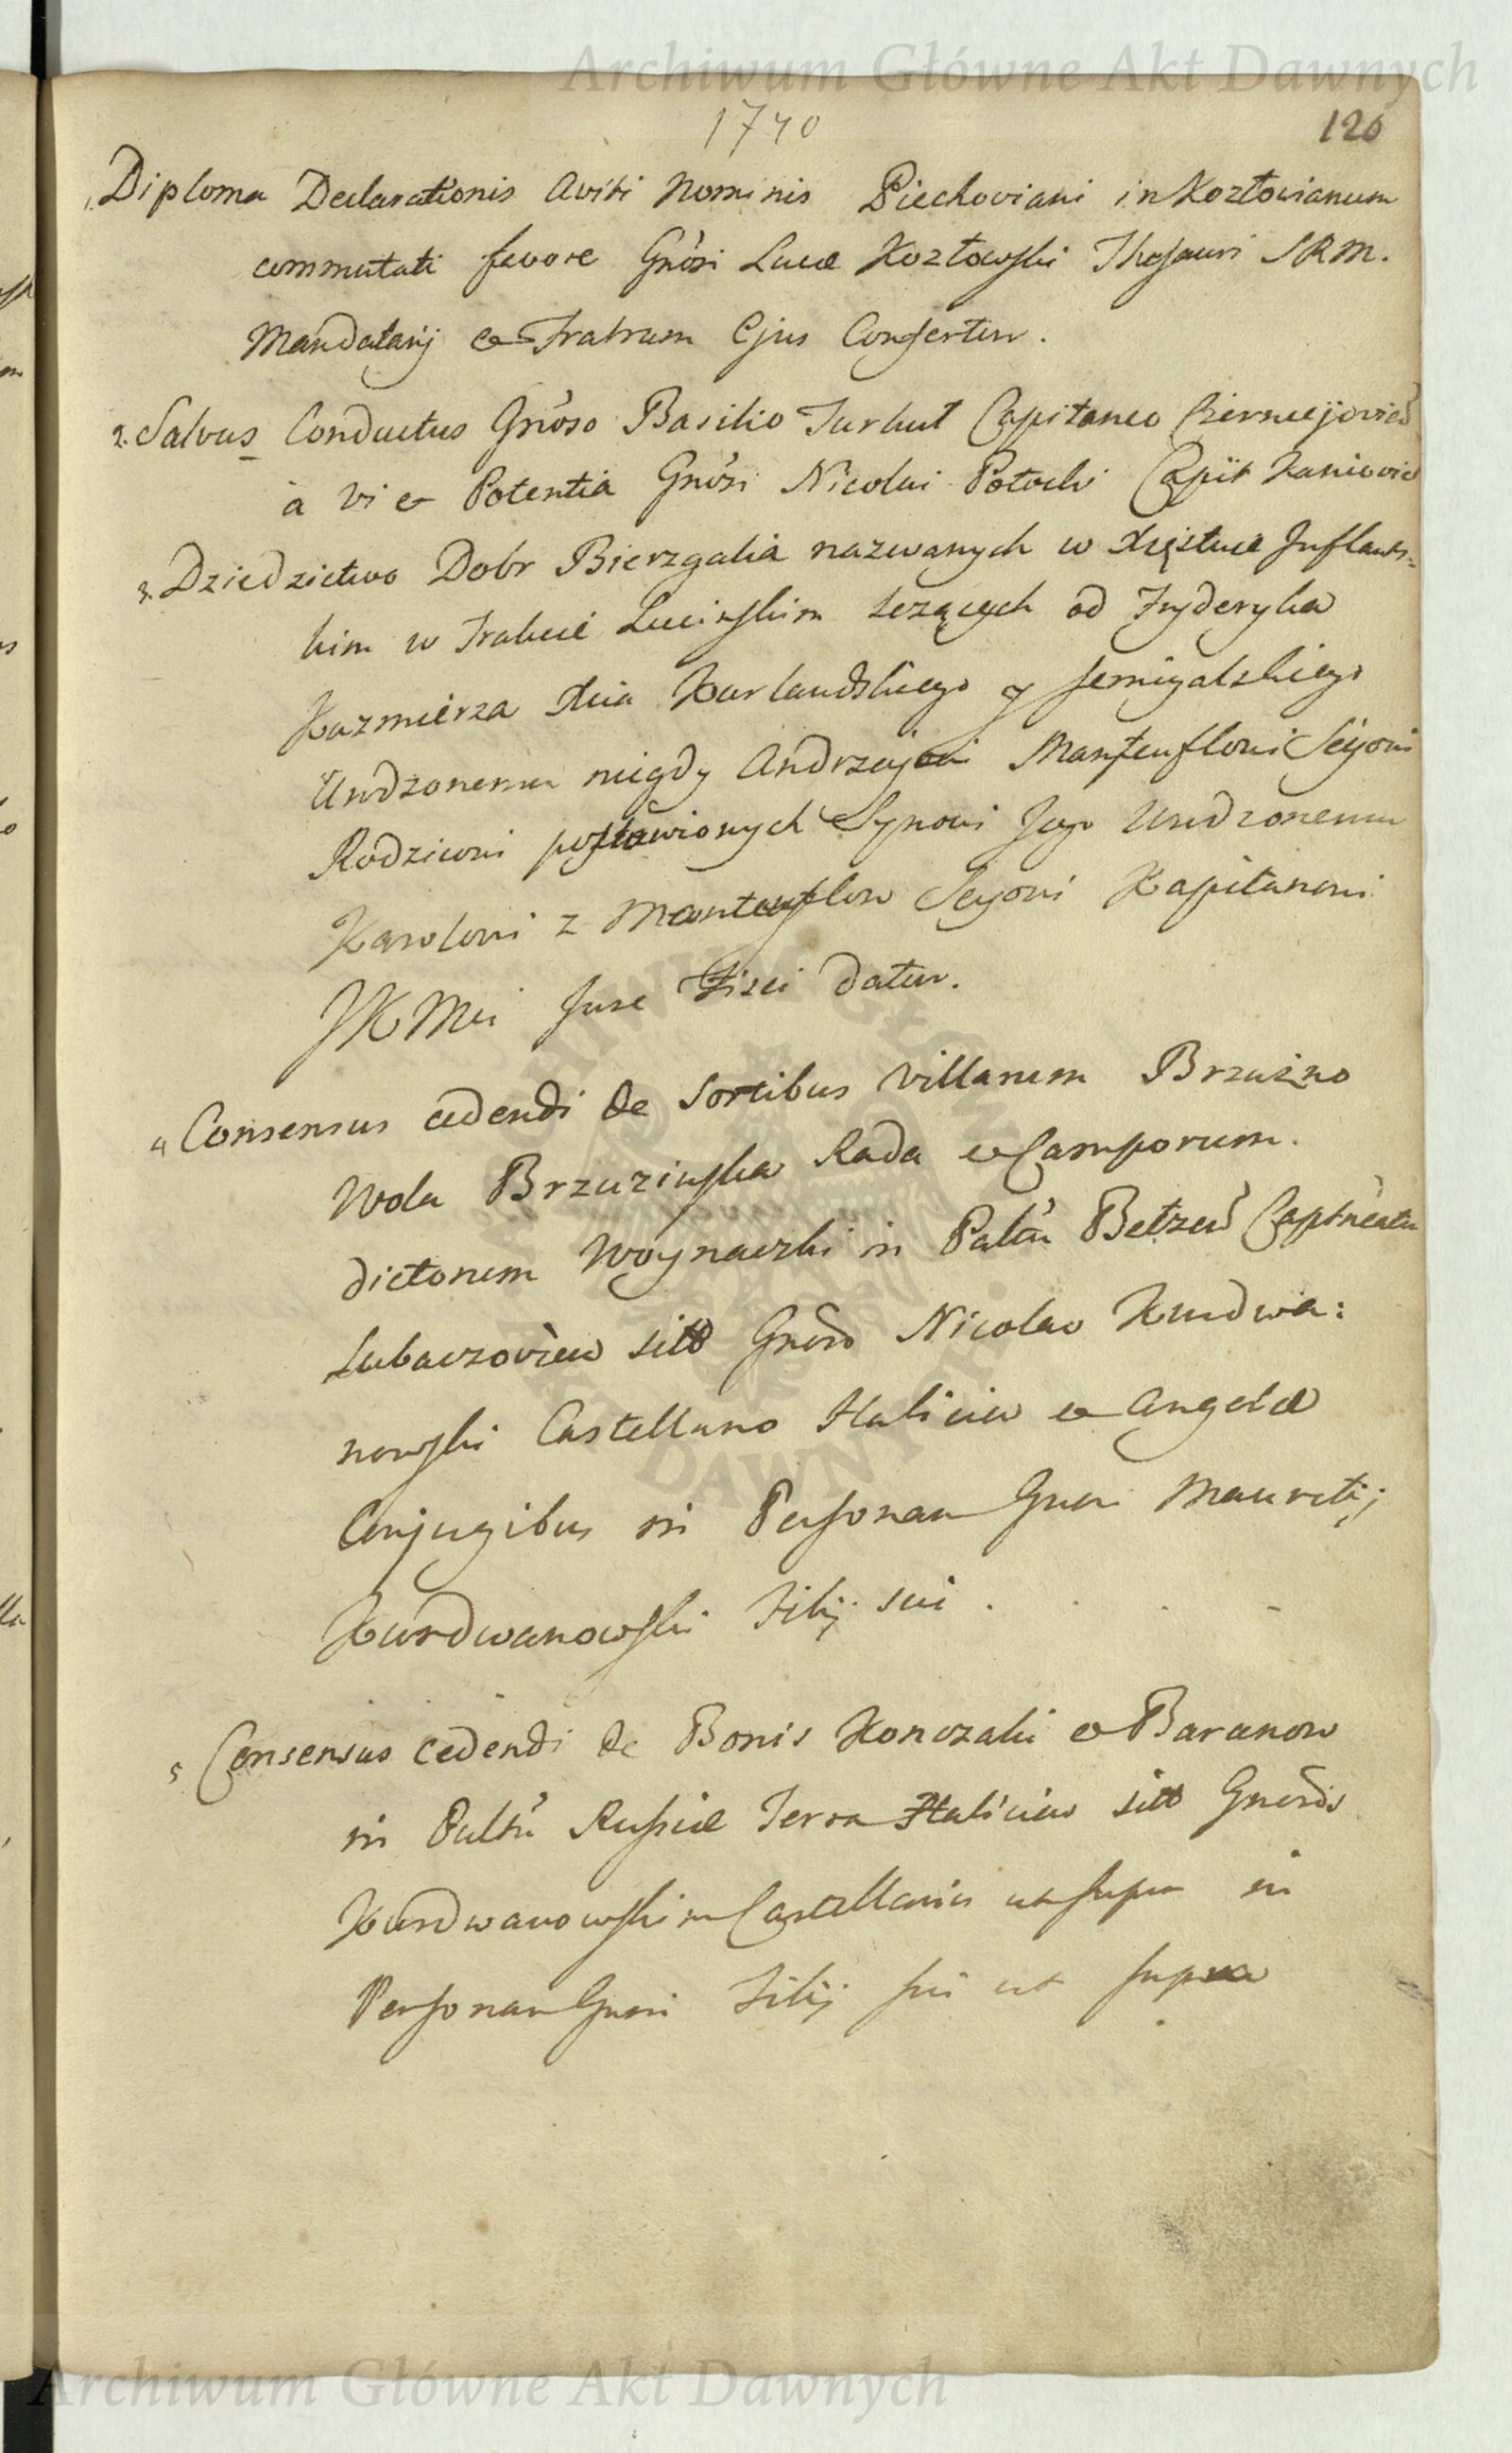 Archiwum Główne Akt Dawnych
1740
120
1. Diploma Declarationis Aviti Nominis Piechoviani in Kozłovianum
commutati favore Gnósi Lucæ Kozłowski Thesauri SRM.
Mandatarij & Fratrum Ejus Confertur.
2. Salvus Conductus Gnóso Basilio Turkuł Capitaneo Czerniejovień
à Vi & Potentia Gnósi Nicolai Potocki Capit Kaniovień
3. Dziedzictwo Dobr Bierzgalia nazwanych w Xięstwie Inflants-
kim w Trakcie Lucinskim lezących od Fryderyka
Kazmierza Xcia Kurlandskiego y Semigalskiego
Urodzonemu niegdy Andrzejowi Manteuflowi Seÿowi
Rodzicowi postawionych Synowi Jego Urodzonemu
Karolowi z Manteuflow Seyowi Kapitanowi
JKMci Jure Fisci Datur.
4 Consensus cedendi de Sortibus Villarum Brzuzno
Wola Brzuzinska Rada & Camporum.
dictorum Woynaczki in Palttu Bełzeń Captneatu
Lubaczovien sitt Gnoso Nicolao Kurdwa:
nowski Castellano Halicien & Angelæ
Conjugibus in Personam Gnsi Mauritij
Kurdwanowski Filij sui .
5 Consensus cedendi de Bonis Konczaki & Baranow
in Palttu Russiæ Terra Halicien sitt Gnosis
Kurdwanowskim Castellanis ut supra in
Personam Gnsi Filij sui ut supra
Archiwum Główne Akt Dawnych